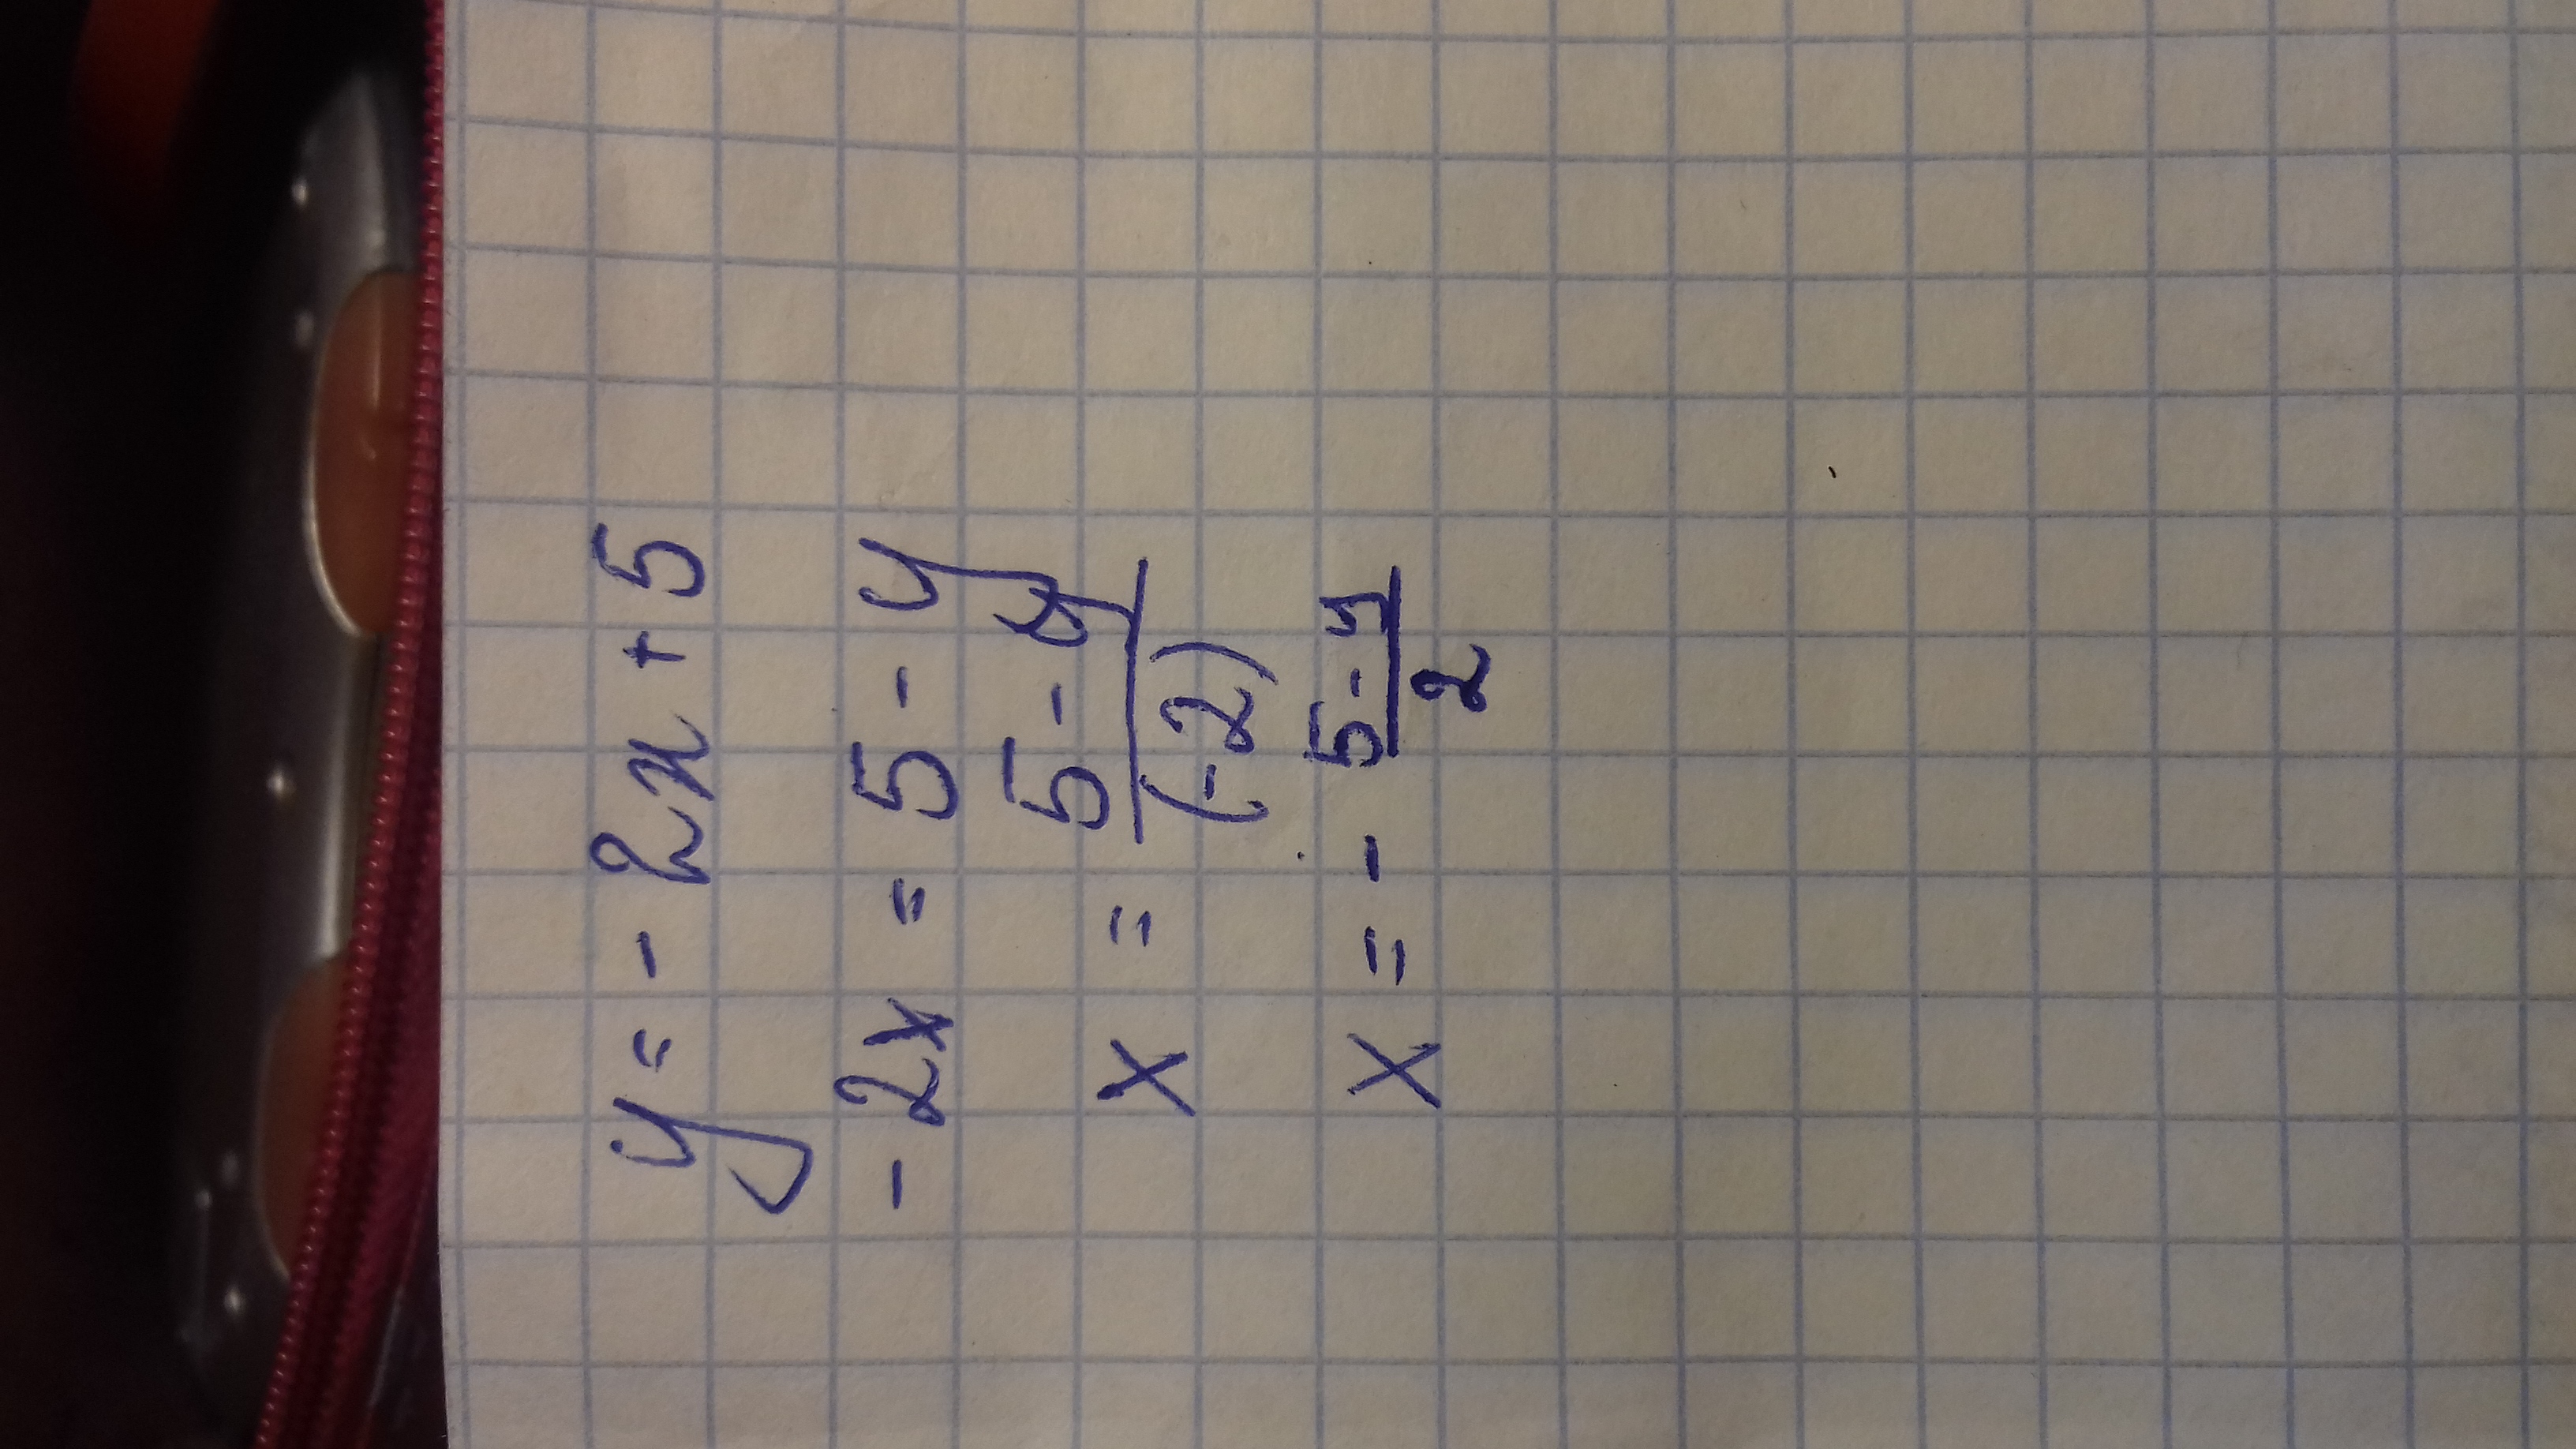 y = - 2x + 5
- 2x = 5 - y
x = 5 - y / (-2)
x = - 5 - y / 2